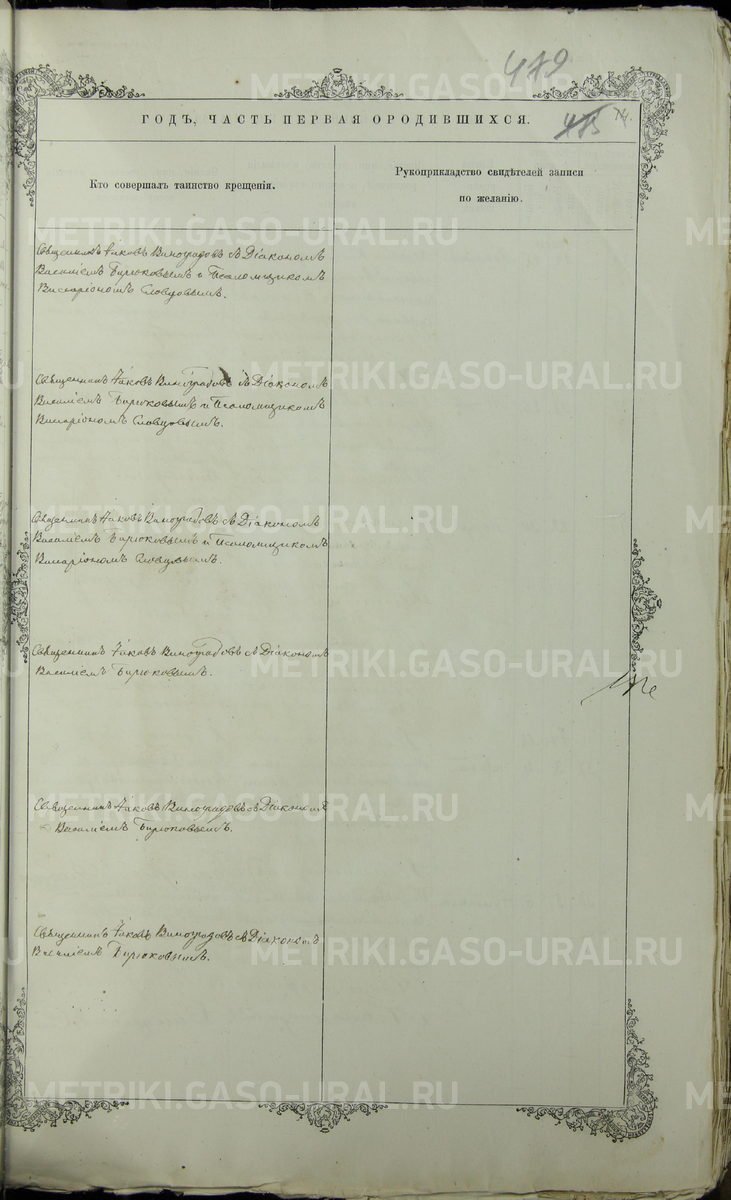 479
ГОДЪ, ЧАСТЬ ПЕРВАЯ О РОДИВШИХСЯ.
475
74.
Кто совершалъ таинство крещенія.
Рукоприкладство свидѣтелей записи
по желанію.
Священникъ Іаковъ Виноградовъ съ Діакономъ
Василіемъ Бирюковымъ и Псаломщикомъ
Виссаріономъ Словцовымъ.
Священникъ Іаковъ Виноградовъ съ Діакономъ
Василіемъ Бирюковымъ и Псаломщикомъ
Виссаріономъ Словцовымъ.
Священникъ Іаковъ Виноградовъ съ Діакономъ
Василіемъ Бирюковымъ и Псаломщикомъ
Виссаріономъ Словцовымъ.
Священникъ Іаковъ Виноградовъ съ Діакономъ
Василіемъ Бирюковымъ.
Священникъ Іаковъ Виноградовъ съ Діакономъ
Василіемъ Бирюковымъ.
Священникъ Іаковъ Виноградовъ съ Діакономъ
Василіемъ Бирюковымъ.
METRIKI.GASO-URAL.RU